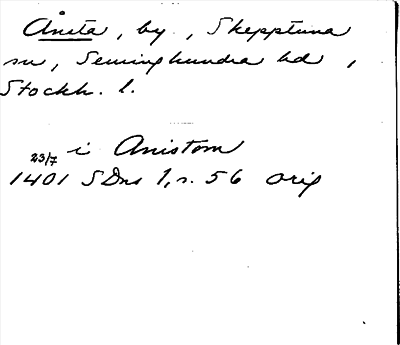 Åneta, by, Skepptuna
sn, Seminghundra hd,
Stockh. l.
i Anistom
23/7
1401 SDns 1, s. 56 orig